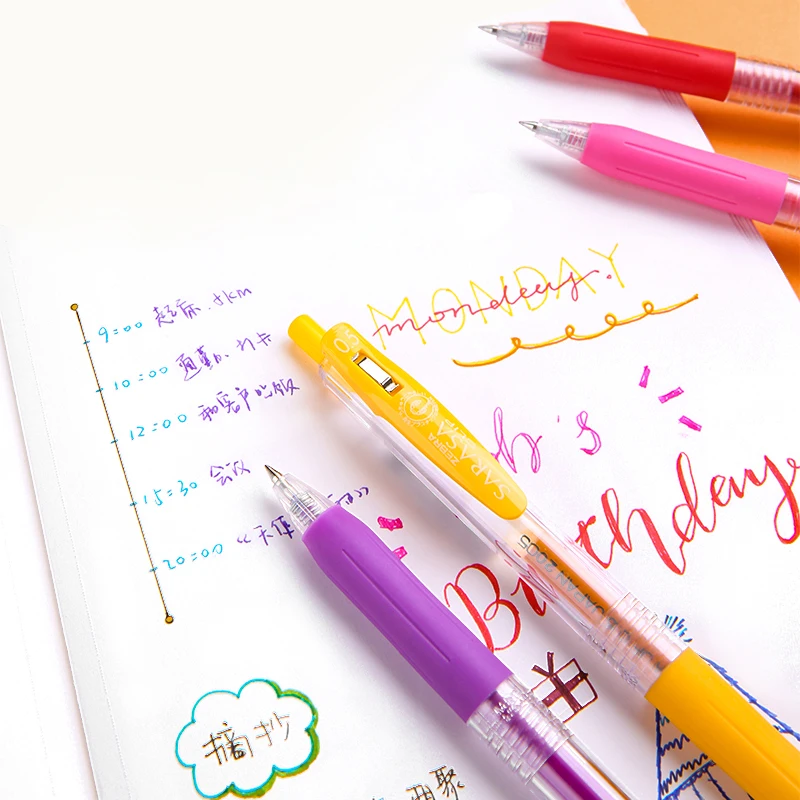 9:00 起床.1km
MONDAY
monday.
10:00 通勤.打卡
12:00 和客户吃饭
's
15:30 会议
Birthday
20:00 《天
0.5
ZEBRA
SARASA
摘抄
聚